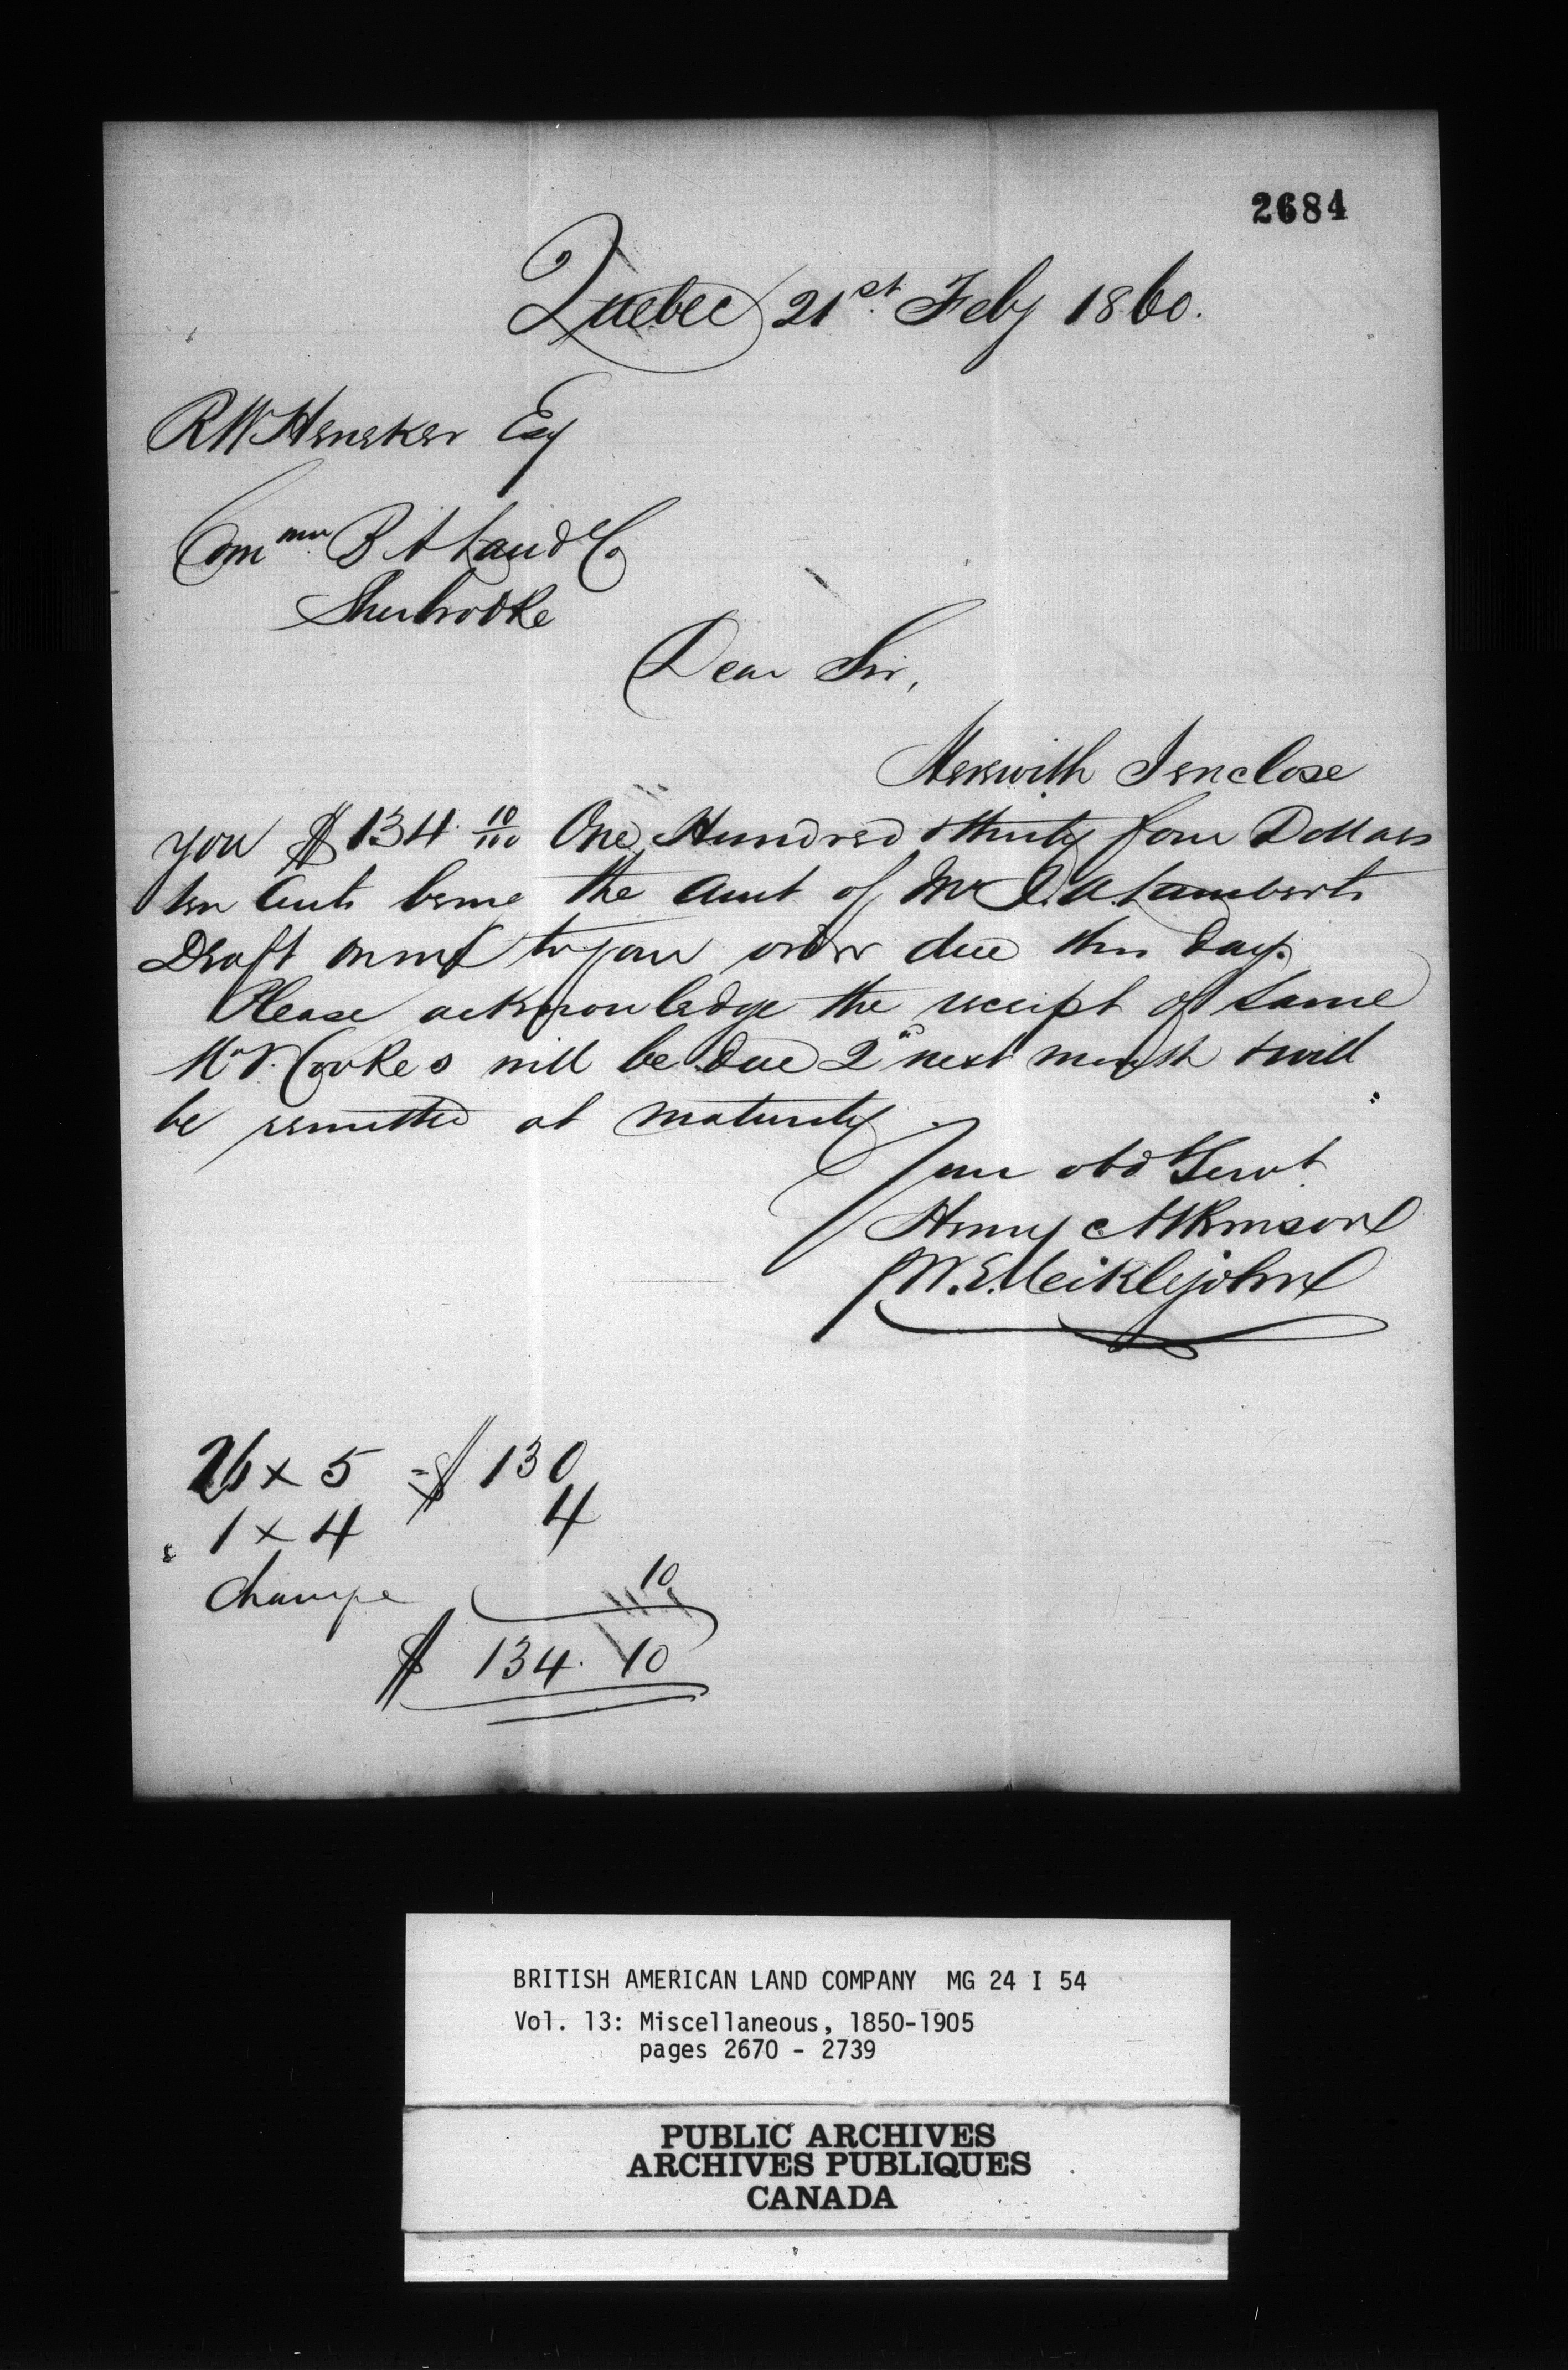 2684
Quebec 21st Feby 1860.
RW Heneker Esq
Commr B A Land Co
Sherbrooke
Dear Sir,
Herewith I enclose
you $134 10/100 One Hundred & thirty four Dollars
ten Cents being the amt of Mr A. Lamberts
Draft on me to your order due this day.
Please acknowledge the receipt of same
Mr Cookes will be due 2nd next month & will
be remitted at maturity
Your obd Servt
Henry Atkinson
W. E. Meiklejohn
26 x 5 = $ 130
1 x 4 4
Change 10
$ 134. 10
BRITISH AMERICAN LAND COMPANY MG 24 I 54
Vol. 13: Miscellaneous, 1850-1905
pages 2670 - 2739
PUBLIC ARCHIVES
ARCHIVES PUBLIQUES
CANADA